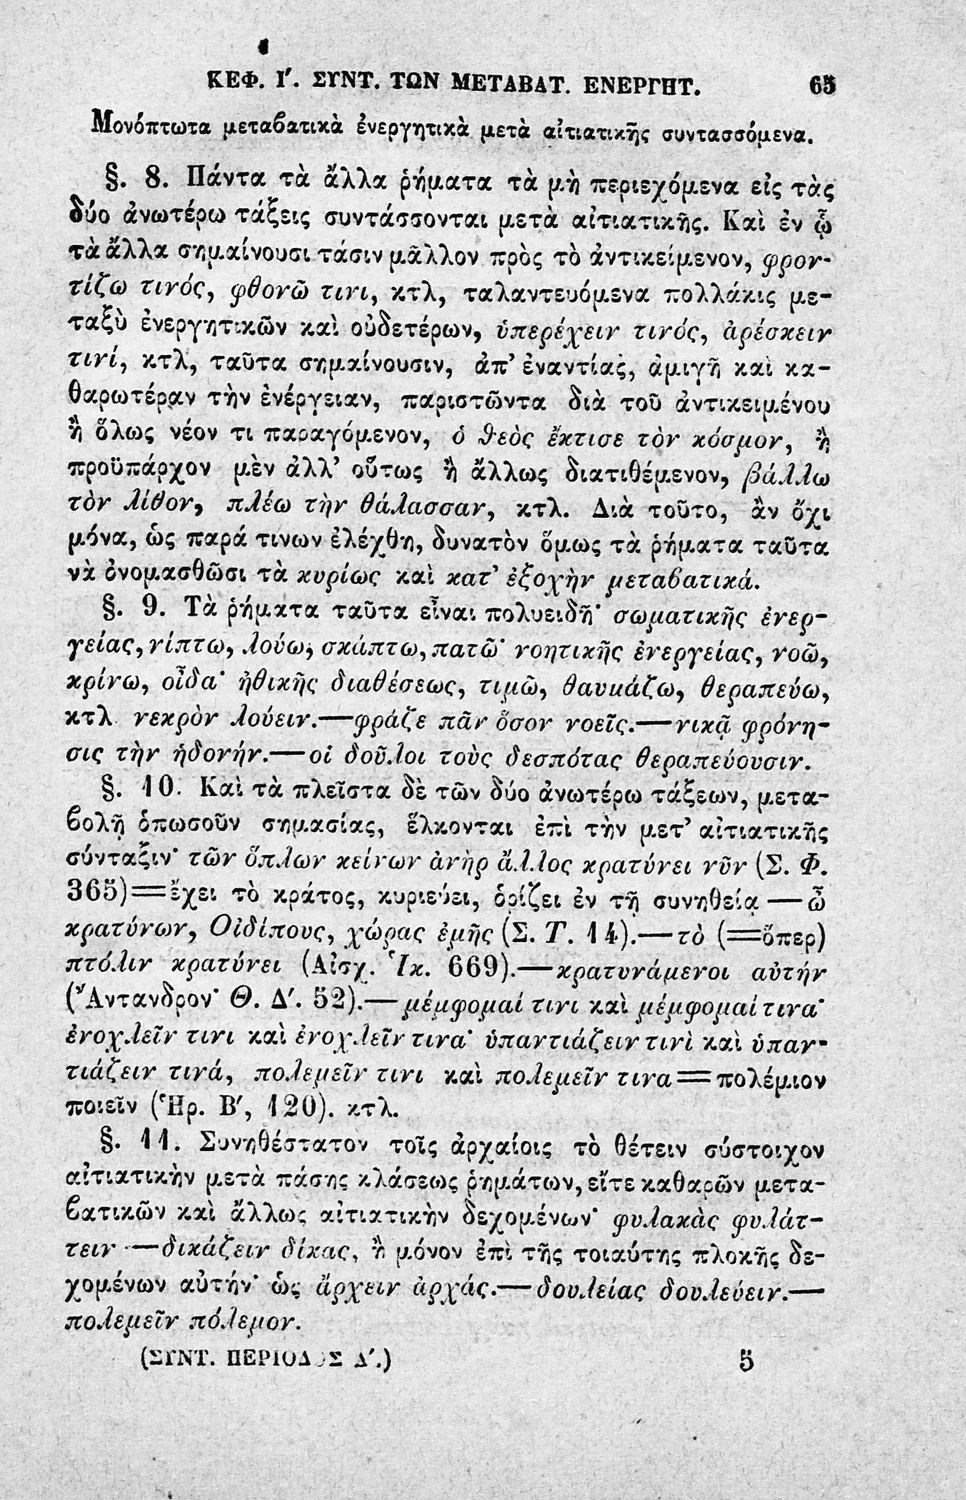 ΚΕΦ. Ι΄. ΣΥΝΤ. ΤΩΝ ΜΕΤΑΒΑΤ. ΕΝΕΡΓΗΤ. 65
Μονόπτωτα μεταβατικὰ ἐνεργητικὰ μετὰ αἰτιατικῆς συντασσόμενα.
§. 8. Πάντα τὰ ἄλλα ῥήματα τὰ μὴ περιεχόμενα εἰς τὰς
δύο ἀνωτέρω τάξεις συντάσσονται μετὰ αἰτιατικῆς. Καὶ ἐν ᾧ
τὰ ἄλλα σημαίνουσι τάσιν μᾶλλον πρὸς τὸ ἀντικείμενον, φρον-
τίζω τινός, φθονῶ τινι, κτλ, ταλαντευόμενα πολλάκις με-
ταξὺ ἐνεργητικῶν καὶ οὐδετέρων, ὑπερέχειν τινός, ἀρέσκειν
τινί, κτλ, ταῦτα σημαίνουσιν, ἀπ' ἐναντίας, ἀμιγῆ καὶ κα-
θαρωτέραν τὴν ἐνέργειαν, παριστῶντα διὰ τοῦ ἀντικειμένου
ἢ ὅλως νέον τι παραγόμενον, ὁ θεὸς ἔκτισε τὸν κόσμον, ἢ
προϋπάρχον μὲν ἀλλ' οὕτως ἢ ἄλλως διατιθέμενον, βάλλω
τὸν λίθον, πλέω τὴν θάλασσαν, κτλ. Διὰ τοῦτο, ἂν ὄχι
μόνα, ὡς παρά τινων ἐλέχθη, δυνατὸν ὅμως τὰ ῥήματα ταῦτα
νὰ ὀνομασθῶσι τὰ κυρίως καὶ κατ' ἐξοχὴν μεταβατικά.
§. 9. Τὰ ῥήματα ταῦτα εἶναι πολυειδῆ· σωματικῆς ἐνερ-
γείας, νίπτω, λούω, σκάπτω, πατῶ· νοητικῆς ἐνεργείας, νοῶ,
κρίνω, οἶδα· ἠθικῆς διαθέσεως, τιμῶ, θαυμάζω, θεραπεύω,
κτλ νεκρὸν λούειν.—φράζε πᾶν ὅσον νοεῖς.—νικᾷ φρόνη-
σις τὴν ἡδονήν.—οἱ δοῦλοι τοὺς δεσπότας θεραπεύουσιν.
§. 10. Καὶ τὰ πλεῖστα δὲ τῶν δύο ἀνωτέρω τάξεων, μετα-
βολῇ ὁπωσοῦν σημασίας, ἕλκονται ἐπὶ τὴν μετ' αἰτιατικῆς
σύνταξιν· τῶν ὅπλων κείνων ἀνὴρ ἄλλος κρατύνει νῦν (Σ. Φ.
365)=ἔχει τὸ κράτος, κυριεύει, ὁρίζει ἐν τῇ συνηθείᾳ—ὦ
κρατύνων, Οἰδίπους, χώρας ἐμῆς (Σ. Τ. 14).—τὸ (=ὅπερ)
πτόλιν κρατύνει (Αἰσχ. Ἱκ. 669).—κρατυνάμενοι αὐτήν
(Ἄντανδρον· Θ. Δ΄. 52).—μέμφομαί τινι καὶ μέμφομαί τινα·
ἐνοχλεῖν τινι καὶ ἐνοχλεῖν τινα· ὑπαντιάζειν τινὶ καὶ ὑπαν-
τιάζειν τινά, πολεμεῖν τινι καὶ πολεμεῖν τινα=πολέμιον
ποιεῖν (Ἡρ. Β΄, 120). κτλ.
§. 11. Συνηθέστατον τοῖς ἀρχαίοις τὸ θέτειν σύστοιχον
αἰτιατικὴν μετὰ πάσης κλάσεως ῥημάτων, εἴτε καθαρῶν μετα-
βατικῶν καὶ ἄλλως αἰτιατικὴν δεχομένων· φυλακὰς φυλάτ-
τειν—δικάζειν δίκας, ἢ μόνον ἐπὶ τῆς τοιαύτης πλοκῆς δε-
χομένων αὐτήν· ὡς ἄρχειν ἀρχάς.—δουλείας δουλεύειν.—
πολεμεῖν πόλεμον.
(ΣΥΝΤ. ΠΕΡΙΟΔΟΣ Δ΄.) 5